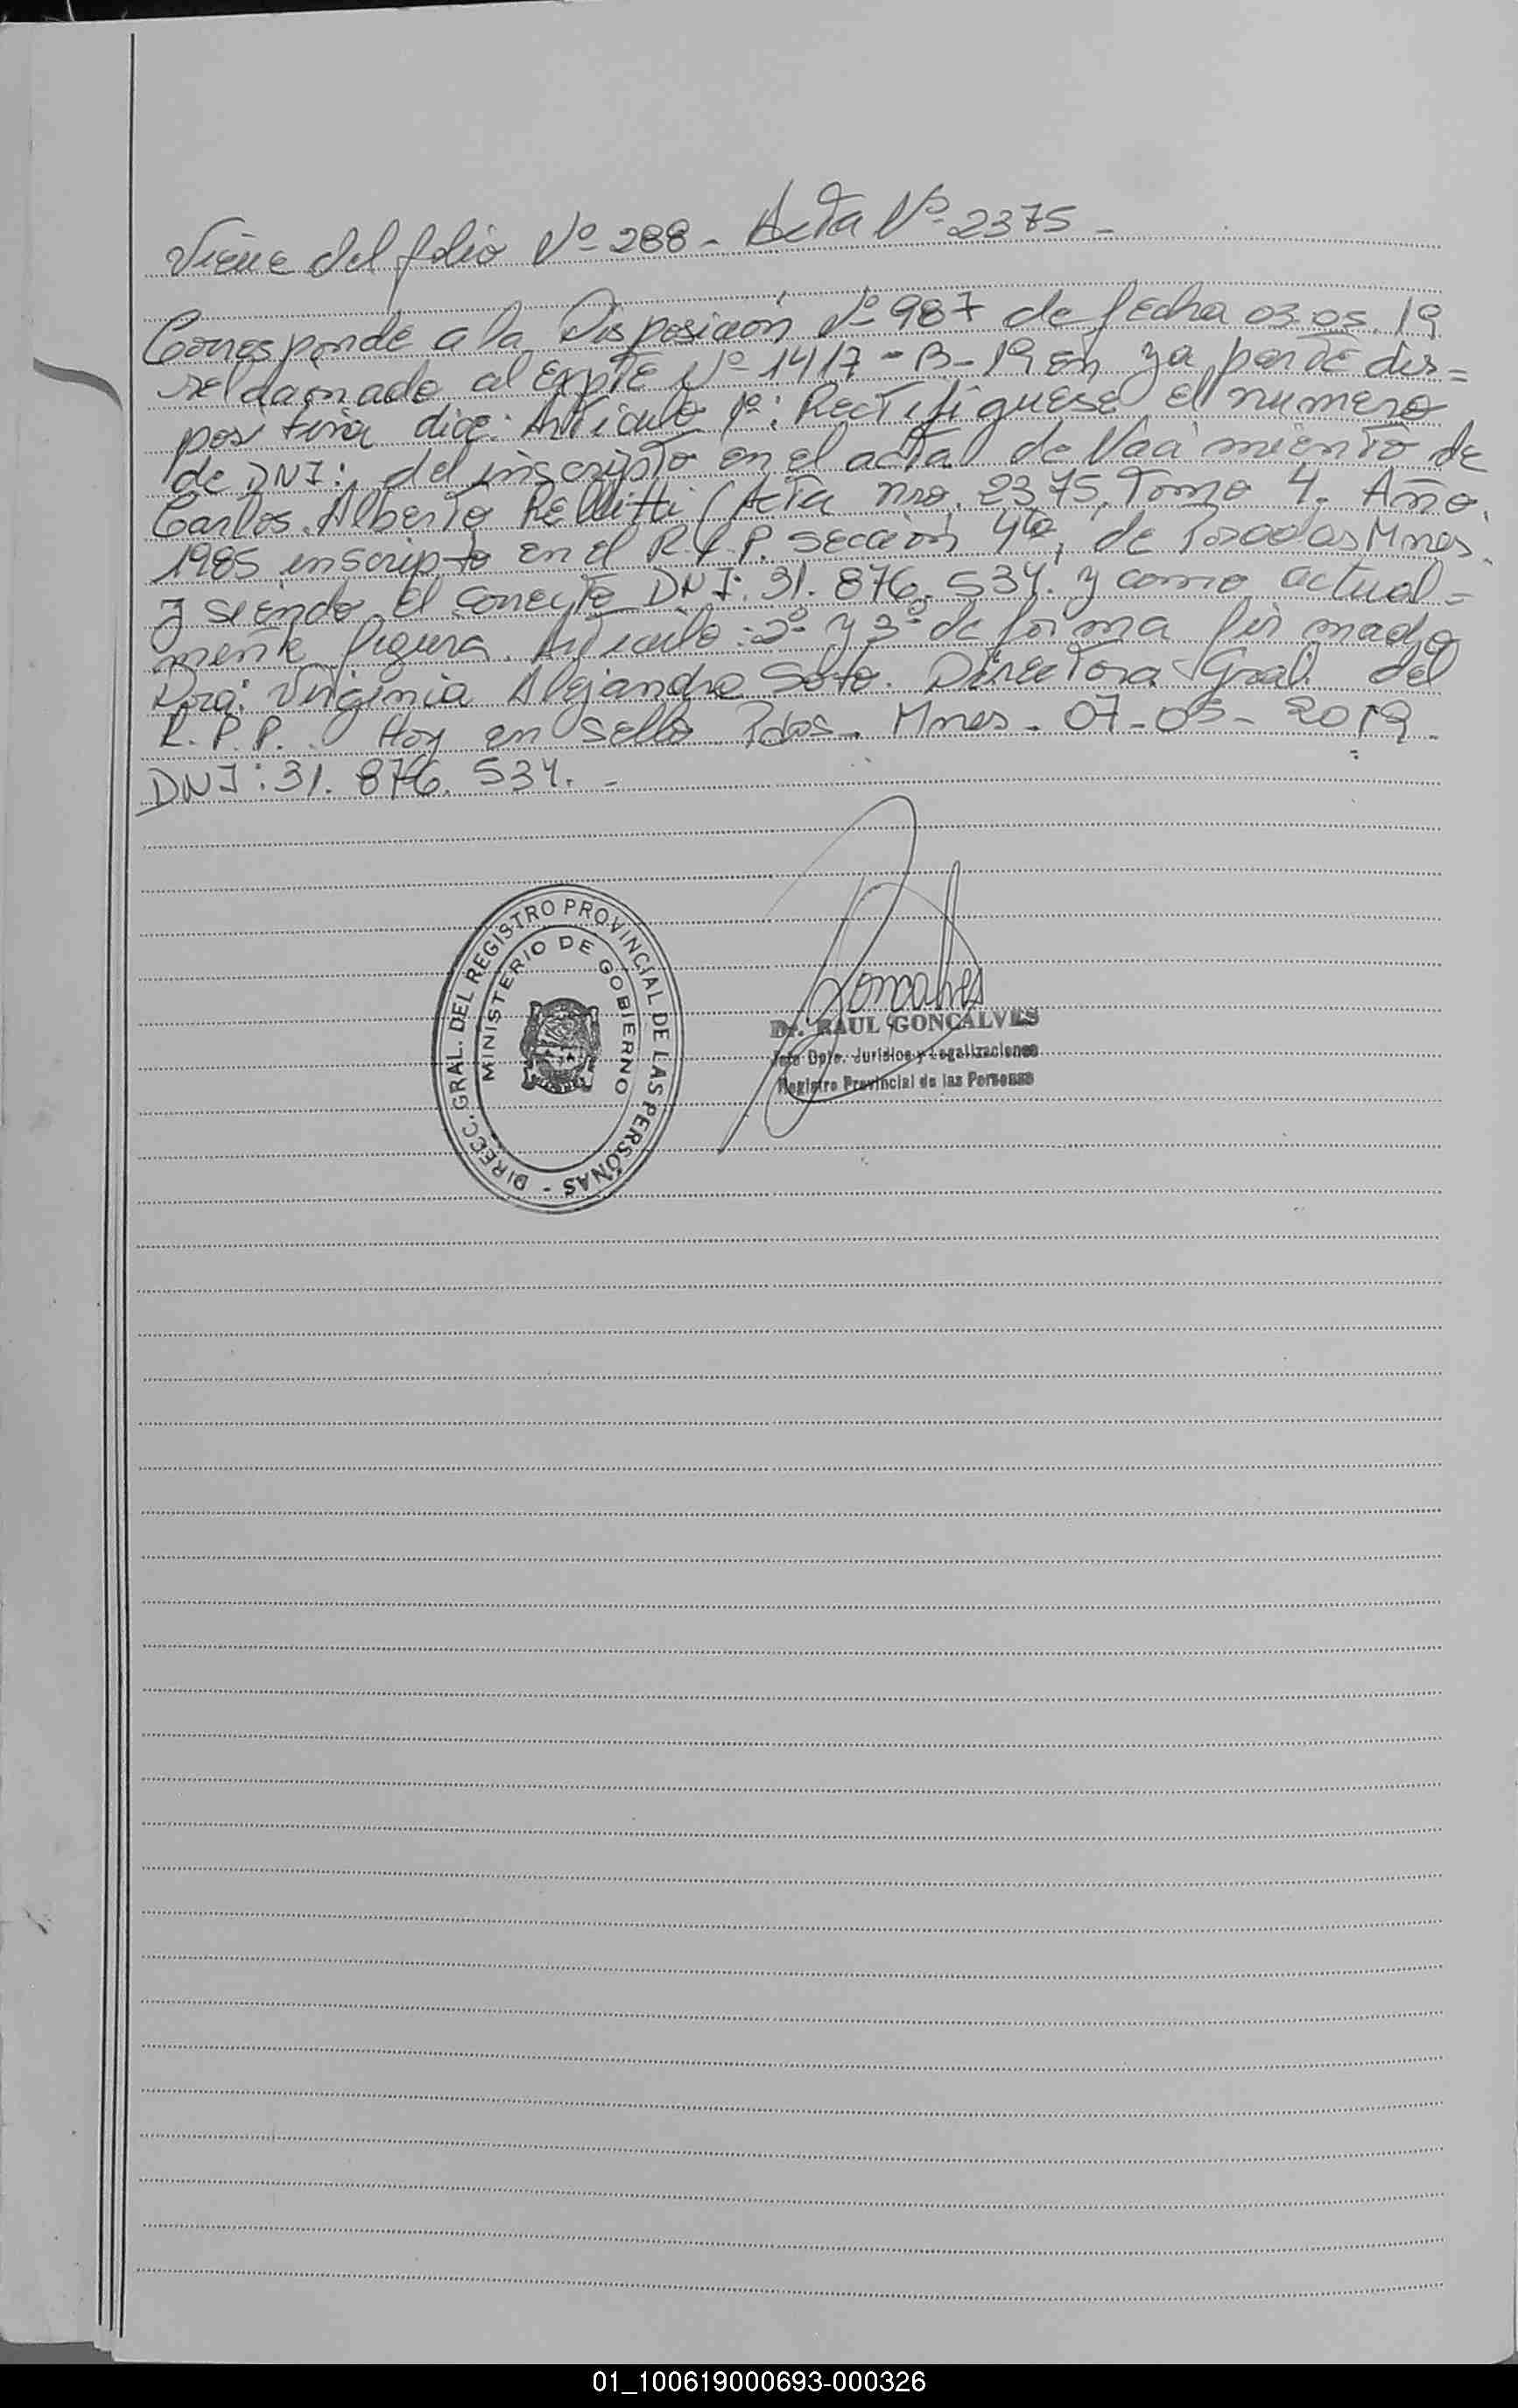 Viene del folio Nº 288 - Acta Nº 2375 -
Corresponde a la Disposición Nº 987 de fecha 03.05.19
relacionado al Expte Nº 1417-B-19 en ya parte dis=
positiva dice: Articulo 1º: Rectifiquese el numero
de DNI: del inscripto en el acta de Nacimiento de
Carlos Alberto (Acta nro. 2375, Tomo 4. Año
1985 inscripto en el R.P.P. sección 4ta, de Posadas Mnes.
y siendo el correcto DNI: 31.876.534. y como actual=
mente figura. Articulo: 2º y 3º de forma firmado
Dra: Virginia Alejandra Soto. Directora Gral. del
R.P.P. Hoy en sello Pdas. Mnes - 07-05-2019.
DNI: 31.876.534. -
DIREC. GRAL. DEL REGISTRO PROVINCIAL DE LAS PERSONAS -
MINISTERIO DE GOBIERNO
Goncalves
Dr. RAUL GONCALVES
Jefe Dpto. Juridico y Legalizaciones
Registro Provincial de las Personas
01_100619000693-000326